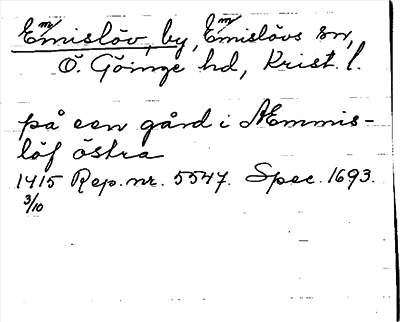 Emmislöv, by, Emmislövs sn,
Ö. Göinge hd, Krist. l.
på een gård i Æmmis-
löf östra
1415 Rep. nr. 5547. Spec. 1693.
3/10